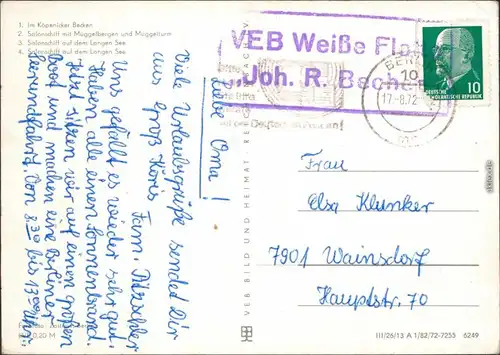 1. Im Köpenicker Becken
2. Salonschiff mit Müggelbergen und Müggelturm
3. Salonschiff auf dem Langen See
4. Salonschiff auf dem Langen See
Liebe Oma!
Viele Urlaubsgrüße sendet Dir
aus Groß Köris Fam.
Uns gefällt es wieder sehr gut.
Haben alle einen Sonnenbrand.
Jetzt sitzen wir auf einem großen
Boot und machen eine Berliner
Seerundfahrt. Von 8.30 bis
VEB BILD UND HEIMAT REICHENBACH
VEB Weiße
Joh. R. Beche
BERLIN
10
17-8.72
DEUTSCHE
DEMOKRATISCHE REPUBLIK
10
Frau
Elsa Klunker
7901 Wainsdorf
Hauptstr. 70
0,20 M
III/26/13 A 1/82/72-7255 6249